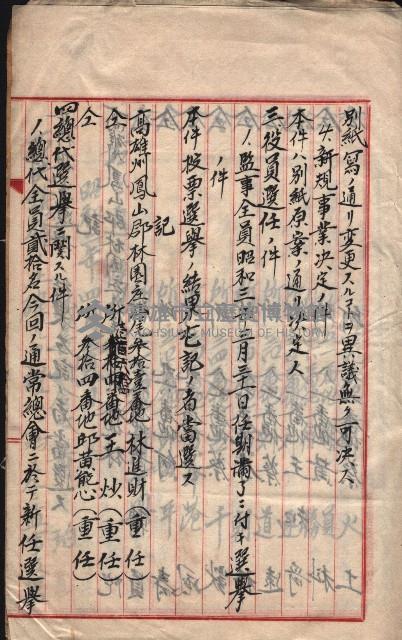 別紙寫ノ通リ変更スルコトヲ異議無ク可決ス
4.新規事業決定ノ件
本件ハ別紙原案ノ通リ決定ス
三役員選任ノ件
1.監事全員昭和三年三月三十一日任期満了ニ付キ選挙
ノ件
本件投票選挙ノ結果左記ノ者當選ス
記
高雄州鳳山郡林園庄 林進財(重任)
仝 番地 王炒(重任)
仝 所 参拾四番地 邱黄能心(重任)
四總代選挙ニ関スル件
1.總代全員貳拾名今回ノ通常總會ニ於テ新任選挙
高雄市立歷史博物館
KAOHSIUNG MUSEUM OF HISTORY